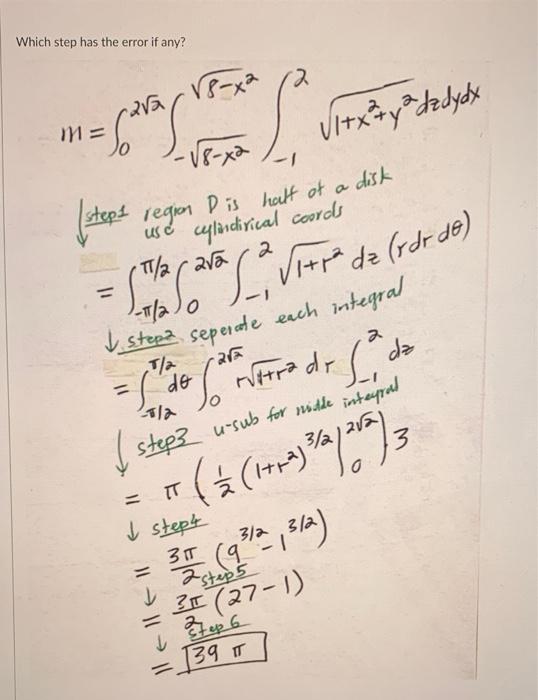 Which step has the error if any?
m = ∫₀^{2√2} ∫_{-√(8-x²)}^{√(8-x²)} ∫_{-1}^{2} √(1+x²+y²) dzdydx
↓ step1 region D is half of a disk
use cylindirical coords
= ∫_{-π/2}^{π/2} ∫₀^{2√2} ∫_{-1}^{2} √(1+r²) dz (rdr dθ)
↓ step2 seperate each integral
= ∫_{-π/2}^{π/2} dθ ∫₀^{2√2} r√(1+r²) dr ∫_{-1}^{2} dz
↓ step3 u-sub for middle integral
= π (1/2 (1+r²)^{3/2} |₀^{2√2}) 3
↓ step4
= 3π/2 (9^{3/2} - 1^{3/2})
↓ step5
= 3π/2 (27-1)
↓ step6
= 39 π